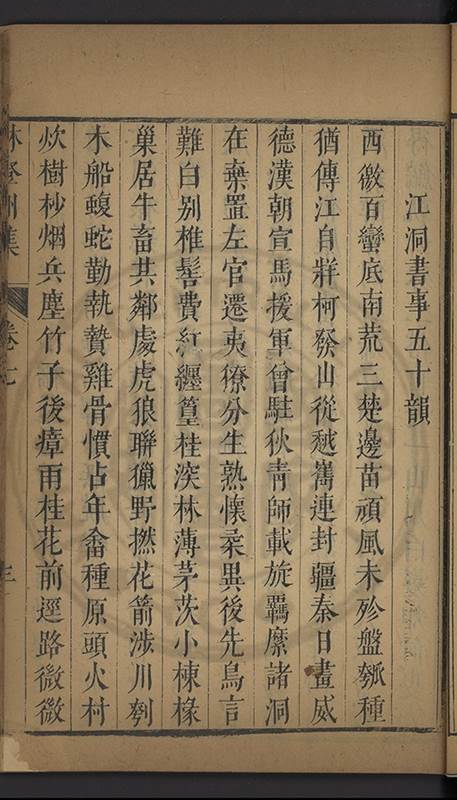 江洞書事五十韻
西徼百蠻底南荒三楚邊苗頑風未殄盤瓠種
猶傳江自牂柯發山從越嶲連封疆秦日畫威
德漢朝宣馬援軍曾駐狄青師載旋羈縻諸洞
在棄置左官遷夷獠分生熟懷柔異後先鳥言
難白别椎髻費紅纏篁桂深林薄茅茨小棟椽
巢居牛畜共鄰處虎狼聯獵野撚花箭涉川刳
木船蝮蛇勤執贄雞骨慣占年畬種原頭火村
炊樹杪烟兵塵竹子後瘴雨桂花前逕路微微
林登州集 卷七
三